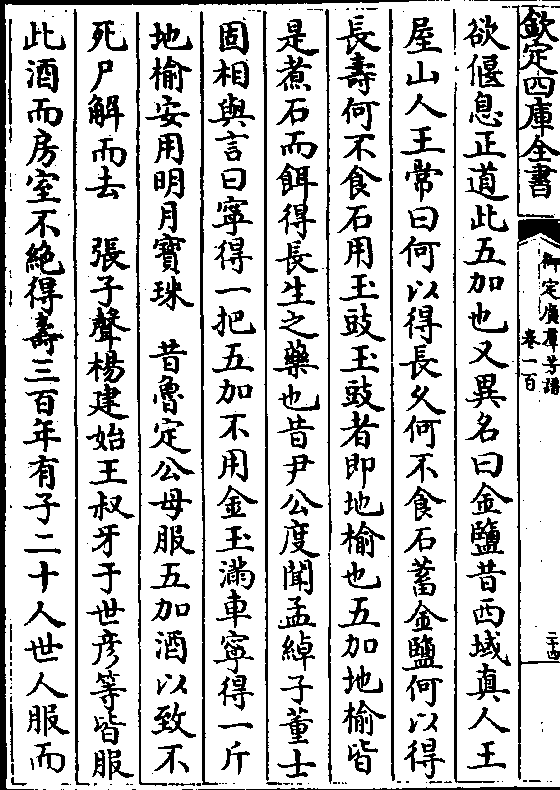 欽定四庫全書
御定廣羣芳譜
卷一百
二十四
欲偃息正道此五加也又異名曰金鹽昔西域真人王
屋山人王常曰何以得長久何不食石蓄金鹽何以得
長壽何不食石用玉豉玉豉者即地榆也五加地榆皆
是煮石而餌得長生之藥也昔尹公度聞孟綽子董士
固相與言曰寧得一把五加不用金玉滿車寧得一斤
地榆安用明月寶珠　昔魯定公母服五加酒以致不
死尸解而去　張子聲楊建始王叔牙于世彥等皆服
此酒而房室不絶得壽三百年有子二十人世人服而